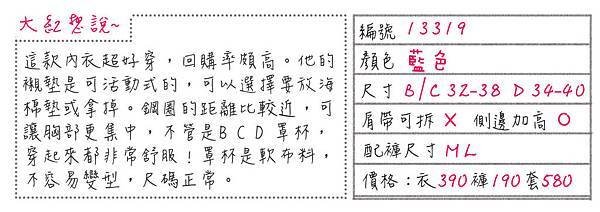 大紅想說~
這款內衣超好穿，回購率頗高。他的
襯墊是可活動式的，可以選擇要放海
棉墊或拿掉。鋼圈的距離比較近，可
讓胸部更集中，不管是BCD罩杯，
穿起來都非常舒服！罩杯是軟布料，
不容易變型，尺碼正常。
編號 13319
顏色 藍色
尺寸 B/C 32-38 D 34-40
肩帶可拆 X 側邊加高 O
配褲尺寸 ML
價格：衣390褲190套580